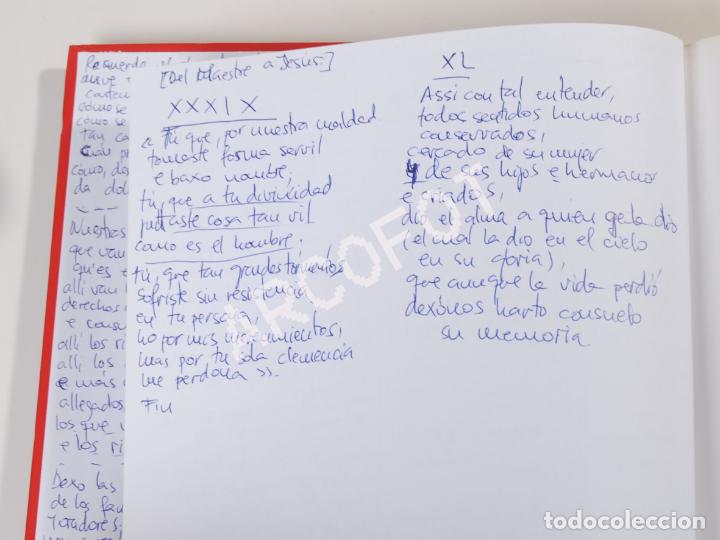 Recuerde el
avive
cómo se
cómo se
tan ca
cómo, des
da dol
Nuestras
que van
qu'es e
allí van l
derechos
e consu
allí los rí
allí, los
e más
allegados,
los que v
e los ri
Dexo las
de los fa
[Del Maestre a Jesus-]
XXXIX
« Tú que, por nuestra maldad
tomaste forma servil
e baxo nombre;
tú, que a tu divinidad
juntaste cosa tan vil
como es el hombre;
tú, que tan grandes tormentos
sofriste sin resistencia
en tu persona,
no por mis merescimientos,
mas por tu sola clemencia
me perdona ».
Fin
XL
Assi con tal entender,
todos sentidos humanos
conservados,
cercado de su mujer
y de sus hijos e hermanos
e criados,
dio el alma a quien gela dio
(el cual la dio en el cielo
en su gloria),
que aunque la vida perdió
dexónos harto consuelo
su memoria.
ARCOFOT
todocoleccion
todocoleccion.net